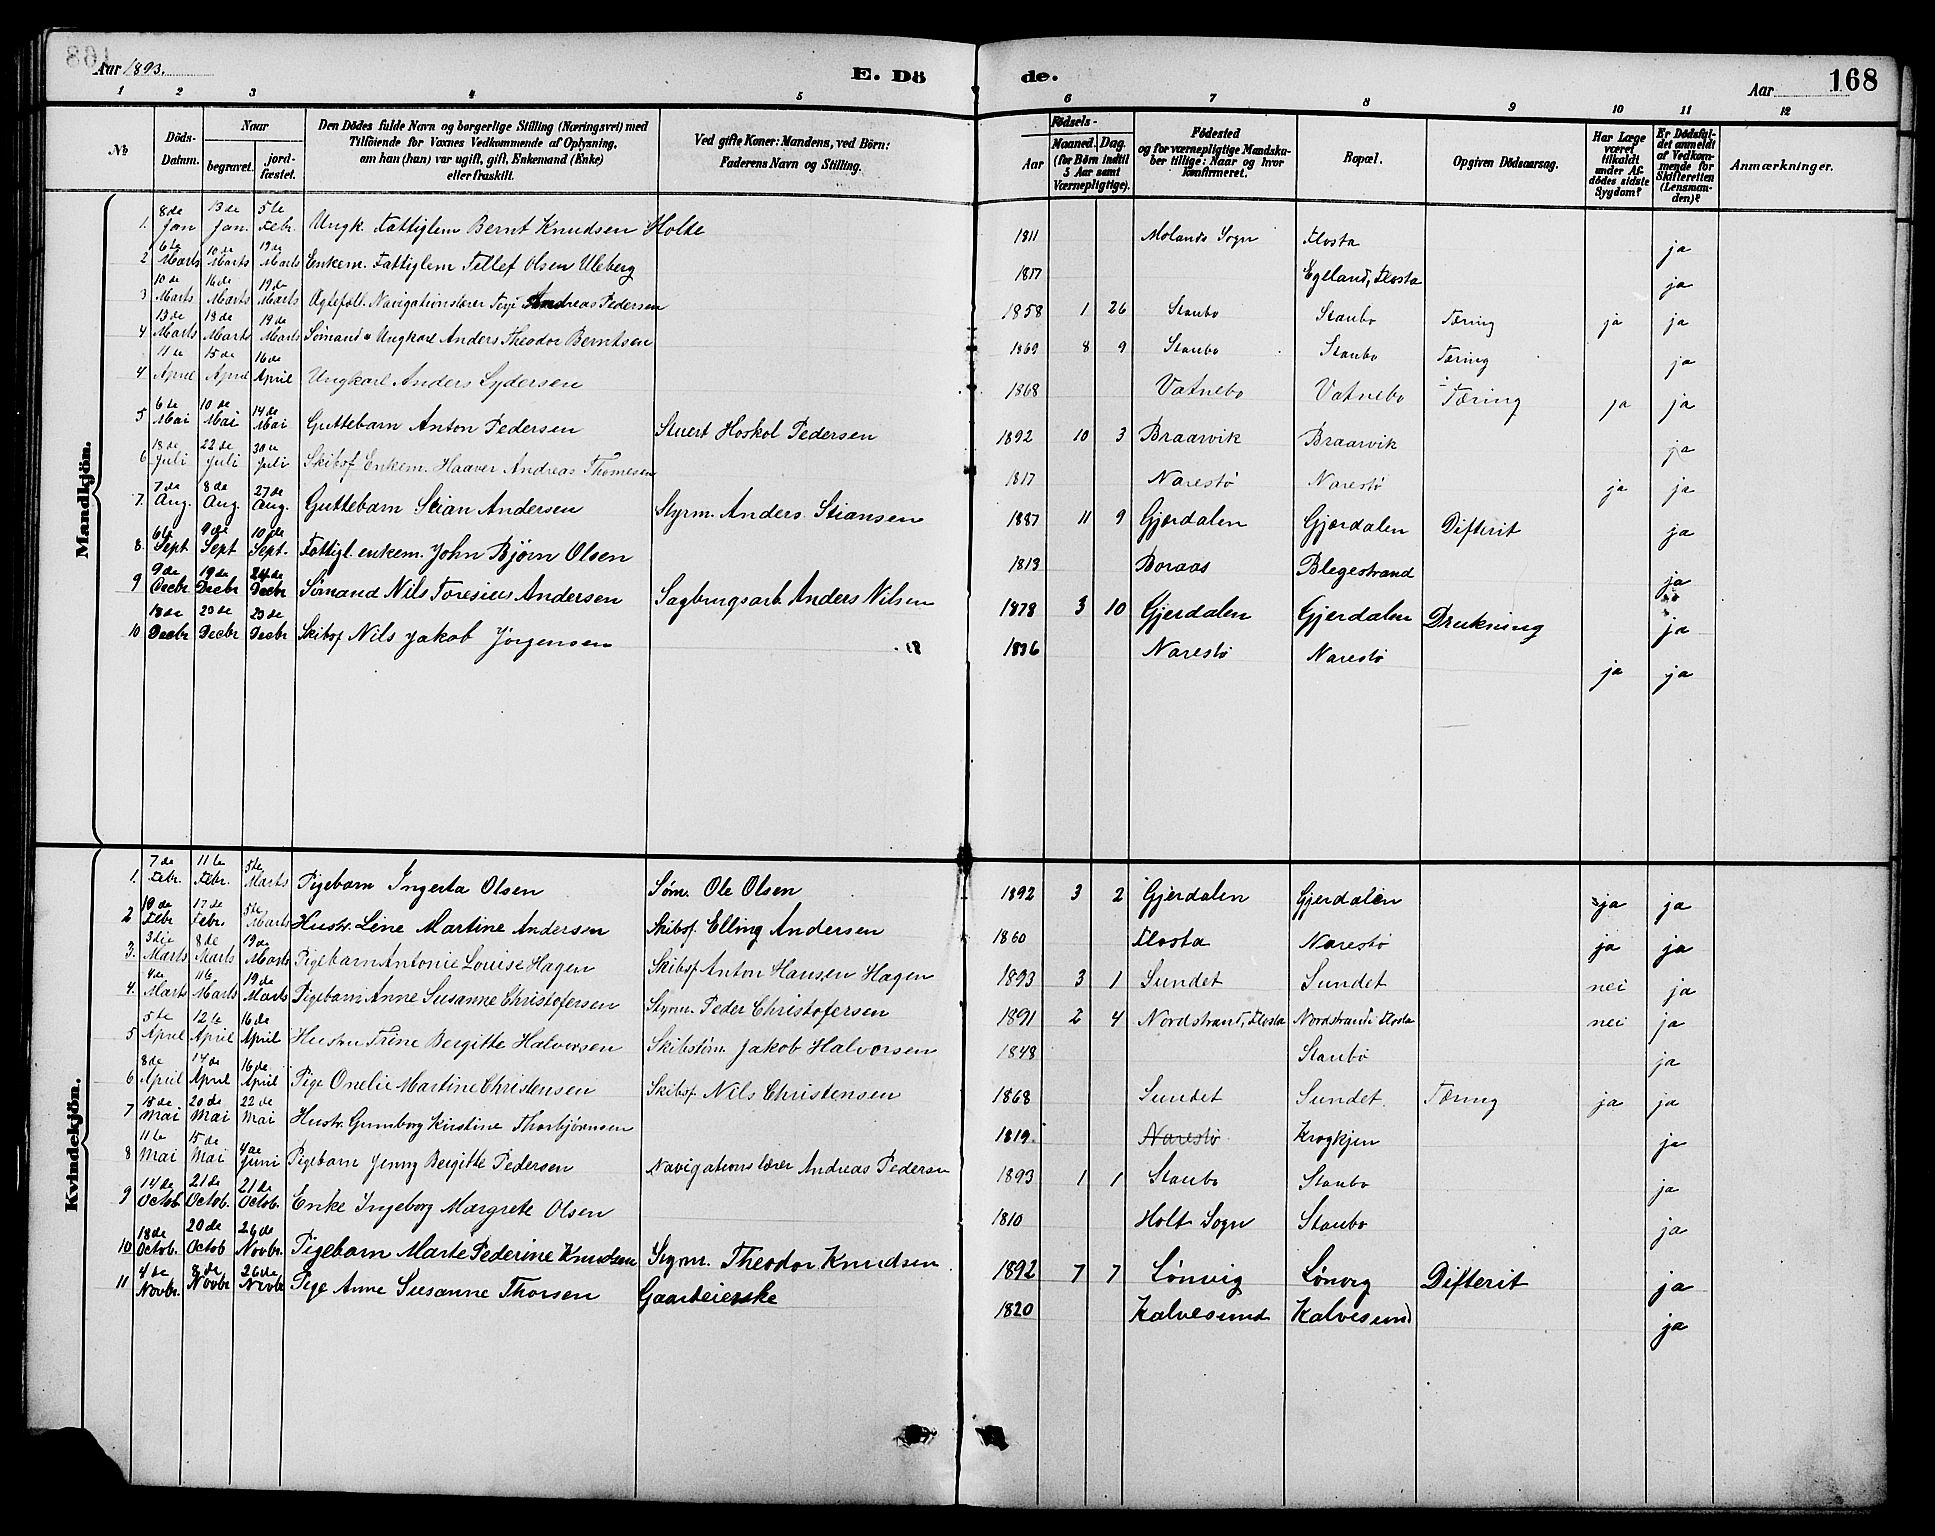 Aar 1893. E. Dö de. Aar 168
1 2 3 4 5 6 7 8 9 10 11 12
№ Döds-Datum. Naar begravet. jord-fæstet. Den Dödes fulde Navn og borgerlige Stilling (Næringsvei) med Tilföiende for Voxnes Vedkommende af Oplysning, om han (hun) var ugift, gift, Enkemand (Enke) eller fraskilt. Ved gifte Koner: Mandens, ved Börn: Faderens Navn og Stilling. Födsels- Aar Maaned. Dag. (for Börn indtil 5 Aar samt Værnepligtige). Födested og for værnepligtige Mandskaber tillige: Naar og hvor konfirmeret. Bopæl. Opgiven Dödsaarsag. Har Læge været tilkaldt under Afdödes sidste Sygdom? Er Dödsfaldet anmeldt af Vedkommende for Skifteretten (Lensmanden)? Anmærkninger.
Mandkjön.
1. 8de Jan 13de Jan. 5te Febr. Ungk. Fattiglem Bernt Knudsen Holte 1811 Molands Sogn Flosta ja
2 6te Marts 10de Marts 19de Marts Enkem. Fattiglem Tellef Olsen Uleberg 1817 Egeland, Flosta ja
3 10de Marts 16de Marts 19de Marts Ægtefolk. Navigationslærer Andreas Pedersen 1858 1 26 Staubo Staubo Tæring ja ja
4 13de Marts 13de Marts 19de Marts Sømand Ungkarl Anders Theodor Berntsen 1869 8 9 Staubo Staubo Tæring ja
4. 11te April 15de April 16de April Ungkarl Anders Sydersen 1868 Vatnebo Vatnebo Tæring ja ja
5 6te Mai 10de Mai 14de Mai Guttebarn Anton Pedersen Stuert Hoskol Pedersen 1892 10 3 Braarvik Braarvik ja
6 18de Juli 22de Juli 30de Juli Skibsf Enkem. Haaver Andreas Thomesen 1817 Narestø Narestø ja ja
7. 7de Aug. 8de Aug. 27de Aug. Guttebarn Stian Andersen Styrm. Anders Stiansen 1887 11 9 Gjerdalen Gjerdalen Difterit ja
8. 6te Sept 9de Sept 10de Sept. Fattigl. enkem. John Bjørn Olsen 1819 Boraas Blegestrand ja
9 9de Decbr 19de Decbr 24de Decbr Sømand Nils Toresius Andersen Sagbrugsarb. Anders Nilsen 1878 3 10 Gjerdalen Gjerdalen Drukning ja
10 18de Decbr 23de Decbr 23de Decbr Skibsf Nils Jakob Jørgensen 1836 Narestø Narestø ja ja
Kvindekjön.
1. 7de Febr. 11te Febr. 5te Marts Pigebarn Ingerta Olsen Søm. Ole Olsen 1892 3 2 Gjerdalen Gjerdalen ja ja
2 10de Febr 17de Febr 5te Marts Hustr. Line Martine Andersen Skibsf. Elling Andersen 1860 Flosta Narestø ja ja
3. 3die Marts 8de Marts 19de Marts Pigebarn Antonie Louise Hagen Skibsf Anton Hansen Hagen 1893 3 1 Sundet Sundet nei ja
4. 4de Marts 11te Marts 19de Marts Pigebarn Anne Susanne Christofersen Styrm. Peder Christofersen 1891 2 4 Nordstrand, Flosta Nordstrand i Flosta nei ja
5 5te April 12te April 16de April Hustru Trine Bergitte Halvorsen Skibstøm. Jakob Halvorsen 1848 Staubø ja
6 8de April 14de April 16de April Pige Onelie Martine Christensen Skibsf. Nils Christensen 1868 Sundet Sundet Tæring ja ja
7 15de Mai 20de Mai 22de Mai Hustr. Gunnborg Kirstine Thorbjørnsen 1819. Narestø Krogkjen ja
8 11te Mai 15de Mai 4de Juni Pigebarn Jenny Bergitte Pedersen Navigationslærer Andreas Pedersen 1893 1 1 Staubo Staubo ja
9 14de Octob. 21de Octob. 21de Octob. Enke Ingeborg Margrete Olsen 1810 Holt Sogn Staubo ja
10 18de Octob. 20de Octob 26de Novbr. Pigebarn Marte Pederine Knudsen Styrm. Theodor Knudsen 1892 7 7 Lønvig Lønvig Difterit ja
11 4de Novbr. 8de Novbr 26de Novbr Pige Anne Susanne Thorsen Gaardeierske 1820 Kalvesund Kalvesund ja